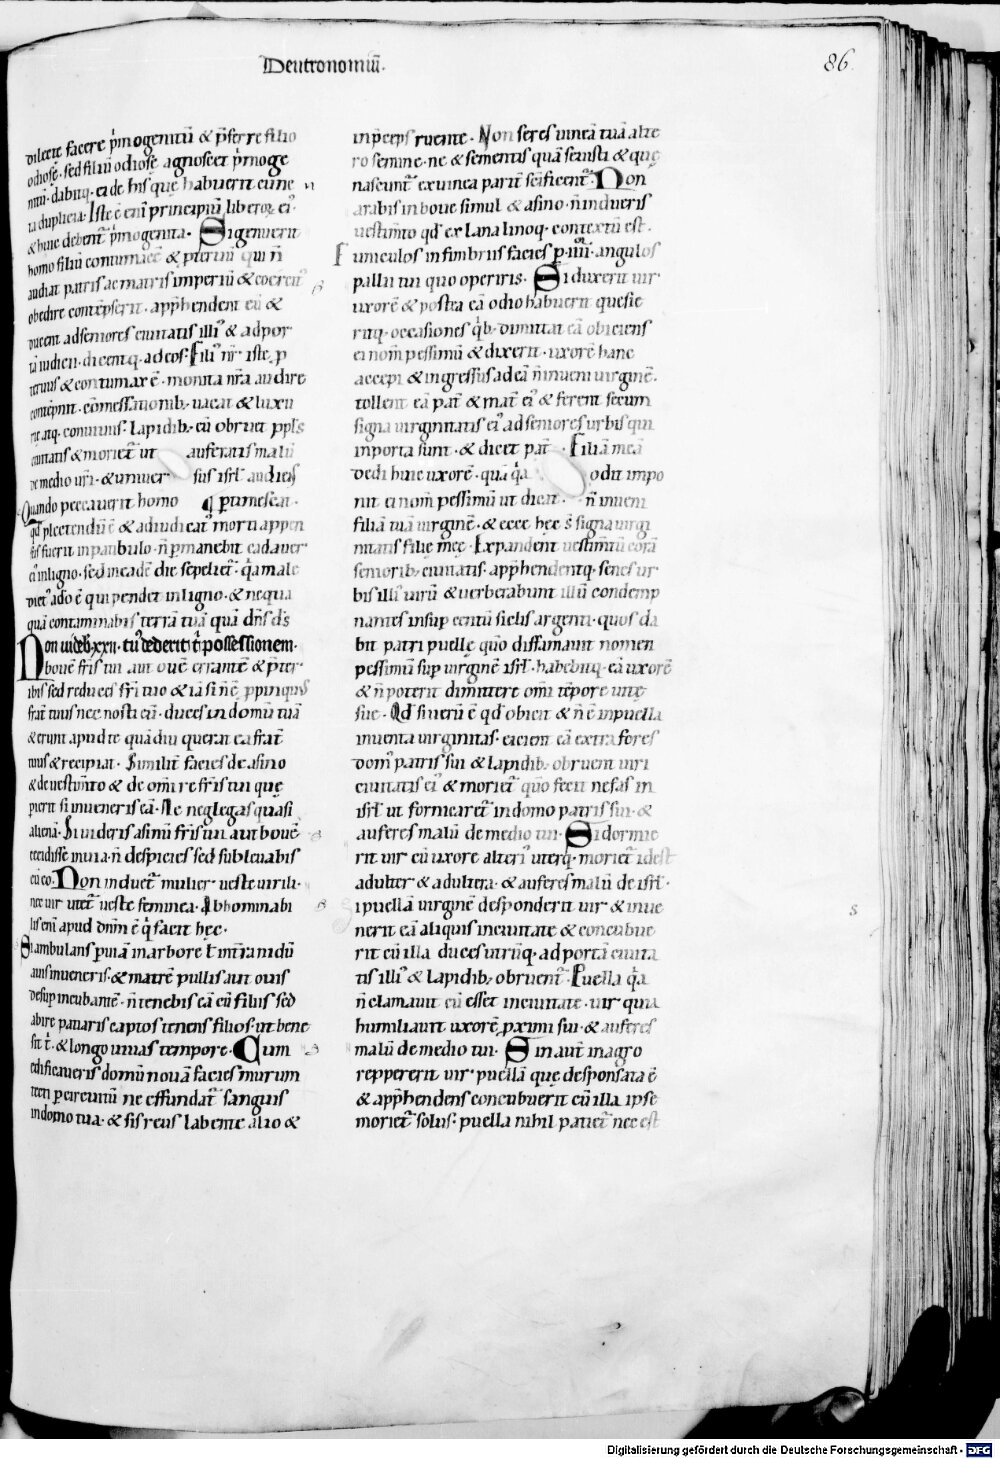 Deutronomiū.
86.
dilecte facere pͥmogenitū & p̄ferre filio
odiose. sed filiū odiosę agnoscet pͥmoge
nitū. dabitq. ei de his quę habuerit cunc
ta duplicia. Iste ē eni᷑ principiū liberoꝝ ei᷒
& huic debent᷑ pͥmogenita. Si genuerit
homo filiū contumacē & p̄teruū qui n̄
audiat patris ac matris imperiū & coercit᷒
obedire contēpserit. app̄hendent eū &
ducent ad seniores ciuitatis illi᷒ & ad por
tā iudicii. dicentq. ad eos. Fili᷒ nr̄ iste. p
teruus & contumax ē. monita nr̄a audire
contēpnit. cōmessationib. uacat & luxu
rię atq. conuiuiis. Lapidib. eū obruet ppl̄s
ciuitatis & moriet᷑ ut auferatis malū
de medio ur̄i. & uniuer sus isrl̄ audiēs
Quando peccauerit homo ¶ ptimescat.
qd̄ plectendū ē & adiudicat᷒ morti appen
sus fuerit in patibulo. n̄ pmanebit cadauer
ei᷒ in ligno. sed in eadē die sepeliet᷑. qͥa male
dict᷒ a do ē qui pendet in ligno. & nequa
quā contaminabis terrā tuā quā dn̄s ds̄
Non uideb. xxii. tu᷒ dederit tͥ possessionem.
bouē fr̄is tui aut ouē errantē & p̄ter
ibis sed reduces fr̄i tuo & iā si n̄ ē ppinquus
frat᷑ tuus nec nosti eū. duces in domū tuā
& erunt apud te quādiu querat ea frat᷑
tuus & recipiat. Similit᷑ facies de asino
& de uestim̄to & de omī re fr̄is tui quę
pierit si inueneris eā. Ne neglegas quasi
alienā. Si uideris asinū fr̄is tui aut bouē
cecidisse in uia. n̄ despicies sed subleuabis
cū eo. Non induet᷑ mulier. ueste uirili.
nec uir utet᷑ ueste feminea. Abhominabi
lis eni᷑ apud dn̄m ē qͥ facit hęc.
Si ambulans p uiā in arbore ł in t᷑ra nidū
auis inueneris. & matrē pullis aut ouis
desup incubantē. n̄ tenebis eā cū filiis sed
abire patiaris captos tenens filios. ut bene
sit tͥ. & longo uiuas tempore. Cum
edificaueris domū nouā facies murum
tecti p circuitū ne effundat᷑ sanguis
in domo tua. & sis reus labente alio &
in p̄ceps ruente. Non seres uineā tuā alte
ro semine. ne & sementis quā seuisti & quę
nascunt᷑ ex uinea parit᷑ sc̄ificent᷑. Non
arabis in boue simul & asino. n̄ indueris
uestim̄to qd̄ ex lana linoq. contextū est.
Funiculos in fimbriis facies p .iiii. angulos
pallii tui quo operiris. Si duxerit uir
uxorē & postea eā odio habuerit quesie
ritq. occasiones qͥb. dimittat eā obiciens
ei nom̄ pessimū & dixerit. uxorē hanc
accepi & ingressus ad eā n̄ inueni uirginē.
tollent eā pat᷑ & mat᷑ ei᷒ & ferent secum
signa uirginitatis ei᷒ ad seniores urbis qui
in porta sunt. & dicet pat᷑. Filiā meā
dedi huic uxorē. quā qͥa odit impo
nit ei nom̄ pessimū ut dicat. n̄ inueni
filiā tuā uirginē. & ecce hęc s̄ signa uirgi
nitatis filię męę. Expandent uestim̄tū corā
seniorib. ciuitatis. app̄hendentq. senes ur
bis illi᷒ uirū & uerberabunt illū condemp
nantes insup centū siclis argenti. quos da
bit patri puellę. quo diffamauit nomen
pessimū sup uirginē isrl̄. habebitq. eā uxorē
& n̄ poterit dimittere omī tēpore uitę
suę. Qd̄ si uerū ē qd̄ obicit & n̄ ē in puella
inuenta uirginitas. eicient eā extra fores
dom᷒ patris sui & lapidib. obruent uiri
ciuitatis ei᷒ & moriet᷑ quo fecit nefas in
isrl̄ ut fornicaret᷑ in domo patris sui. &
auferes malū de medio tui. Si dormie
rit uir cū uxore alteri᷒ uterq. moriet᷑ id est
adulter & adultera. & auferes malū de isrl̄.
i puellā uirginē desponderit uir & inue
nerit eā aliquis in ciuitate & concubue
rit cū illa duces utrūq. ad portā ciuita
tis illi᷒ & lapidib. obruent᷑. Puella qͥa
n̄ clamauit cū esset in ciuitate. uir quia
humiliauit uxorē pximi sui. & auferes
malū de medio tui. Sin aut̄ in agro
reppererit uir. puellā quę desponsata ē
& app̄hendens concubuerit cū illa ipse
moriet᷑ solus. puella nihil patiet᷑ nec est
s
Digitalisierung gefördert durch die Deutsche Forschungsgemeinschaft - DFG